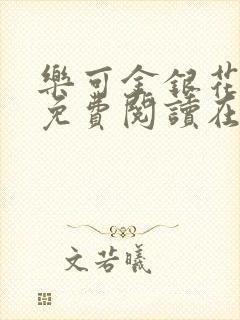 樂可金銀花
免費閱讀在
文若曦